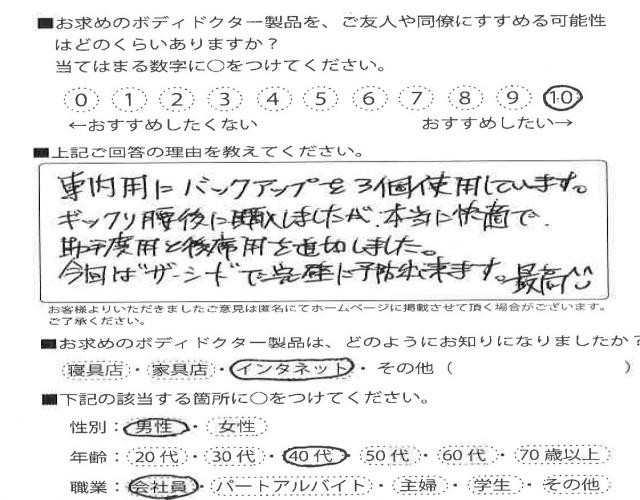 ■お求めのボディドクター製品を、ご友人や同僚にすすめる可能性
はどのくらいありますか？
当てはまる数字に○をつけてください。
0 1 2 3 4 5 6 7 8 9 10
←おすすめしたくない おすすめしたい→
■上記ご回答の理由を教えてください。
車内用にバックアップを3個使用しています。
ギックリ腰後に購入しましたが、本当に快適で、
助手席用と後席用を追加しました。
今回は"ザ・シート"で完璧に予防出来ます。最高!
お客様よりいただきましたご意見は匿名にてホームページに掲載させて頂く場合がございます。
ご了承ください。
■お求めのボディドクター製品は、どのようにお知りになりましたか？
寝具店・家具店・インタネット・その他（ ）
■下記の該当する箇所に○をつけてください。
性別：男性・女性
年齢：20代・30代・40代・50代・60代・70歳以上
職業：会社員・パートアルバイト・主婦・学生・その他